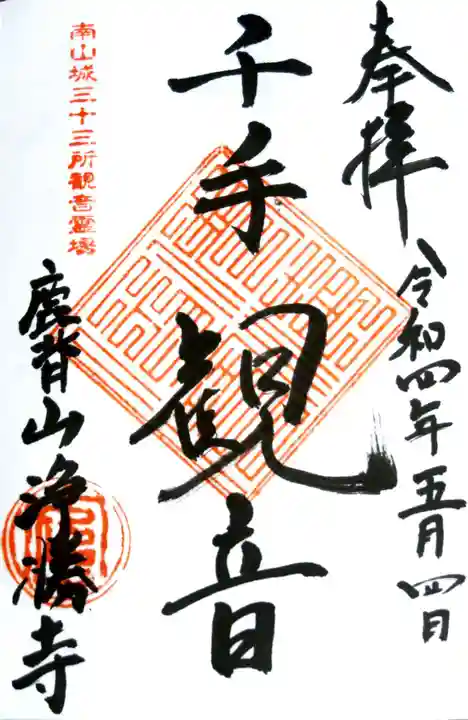 奉拝
令和四年五月四日
千手観音
南山城三十三所観音霊場
鹿背山浄勝寺